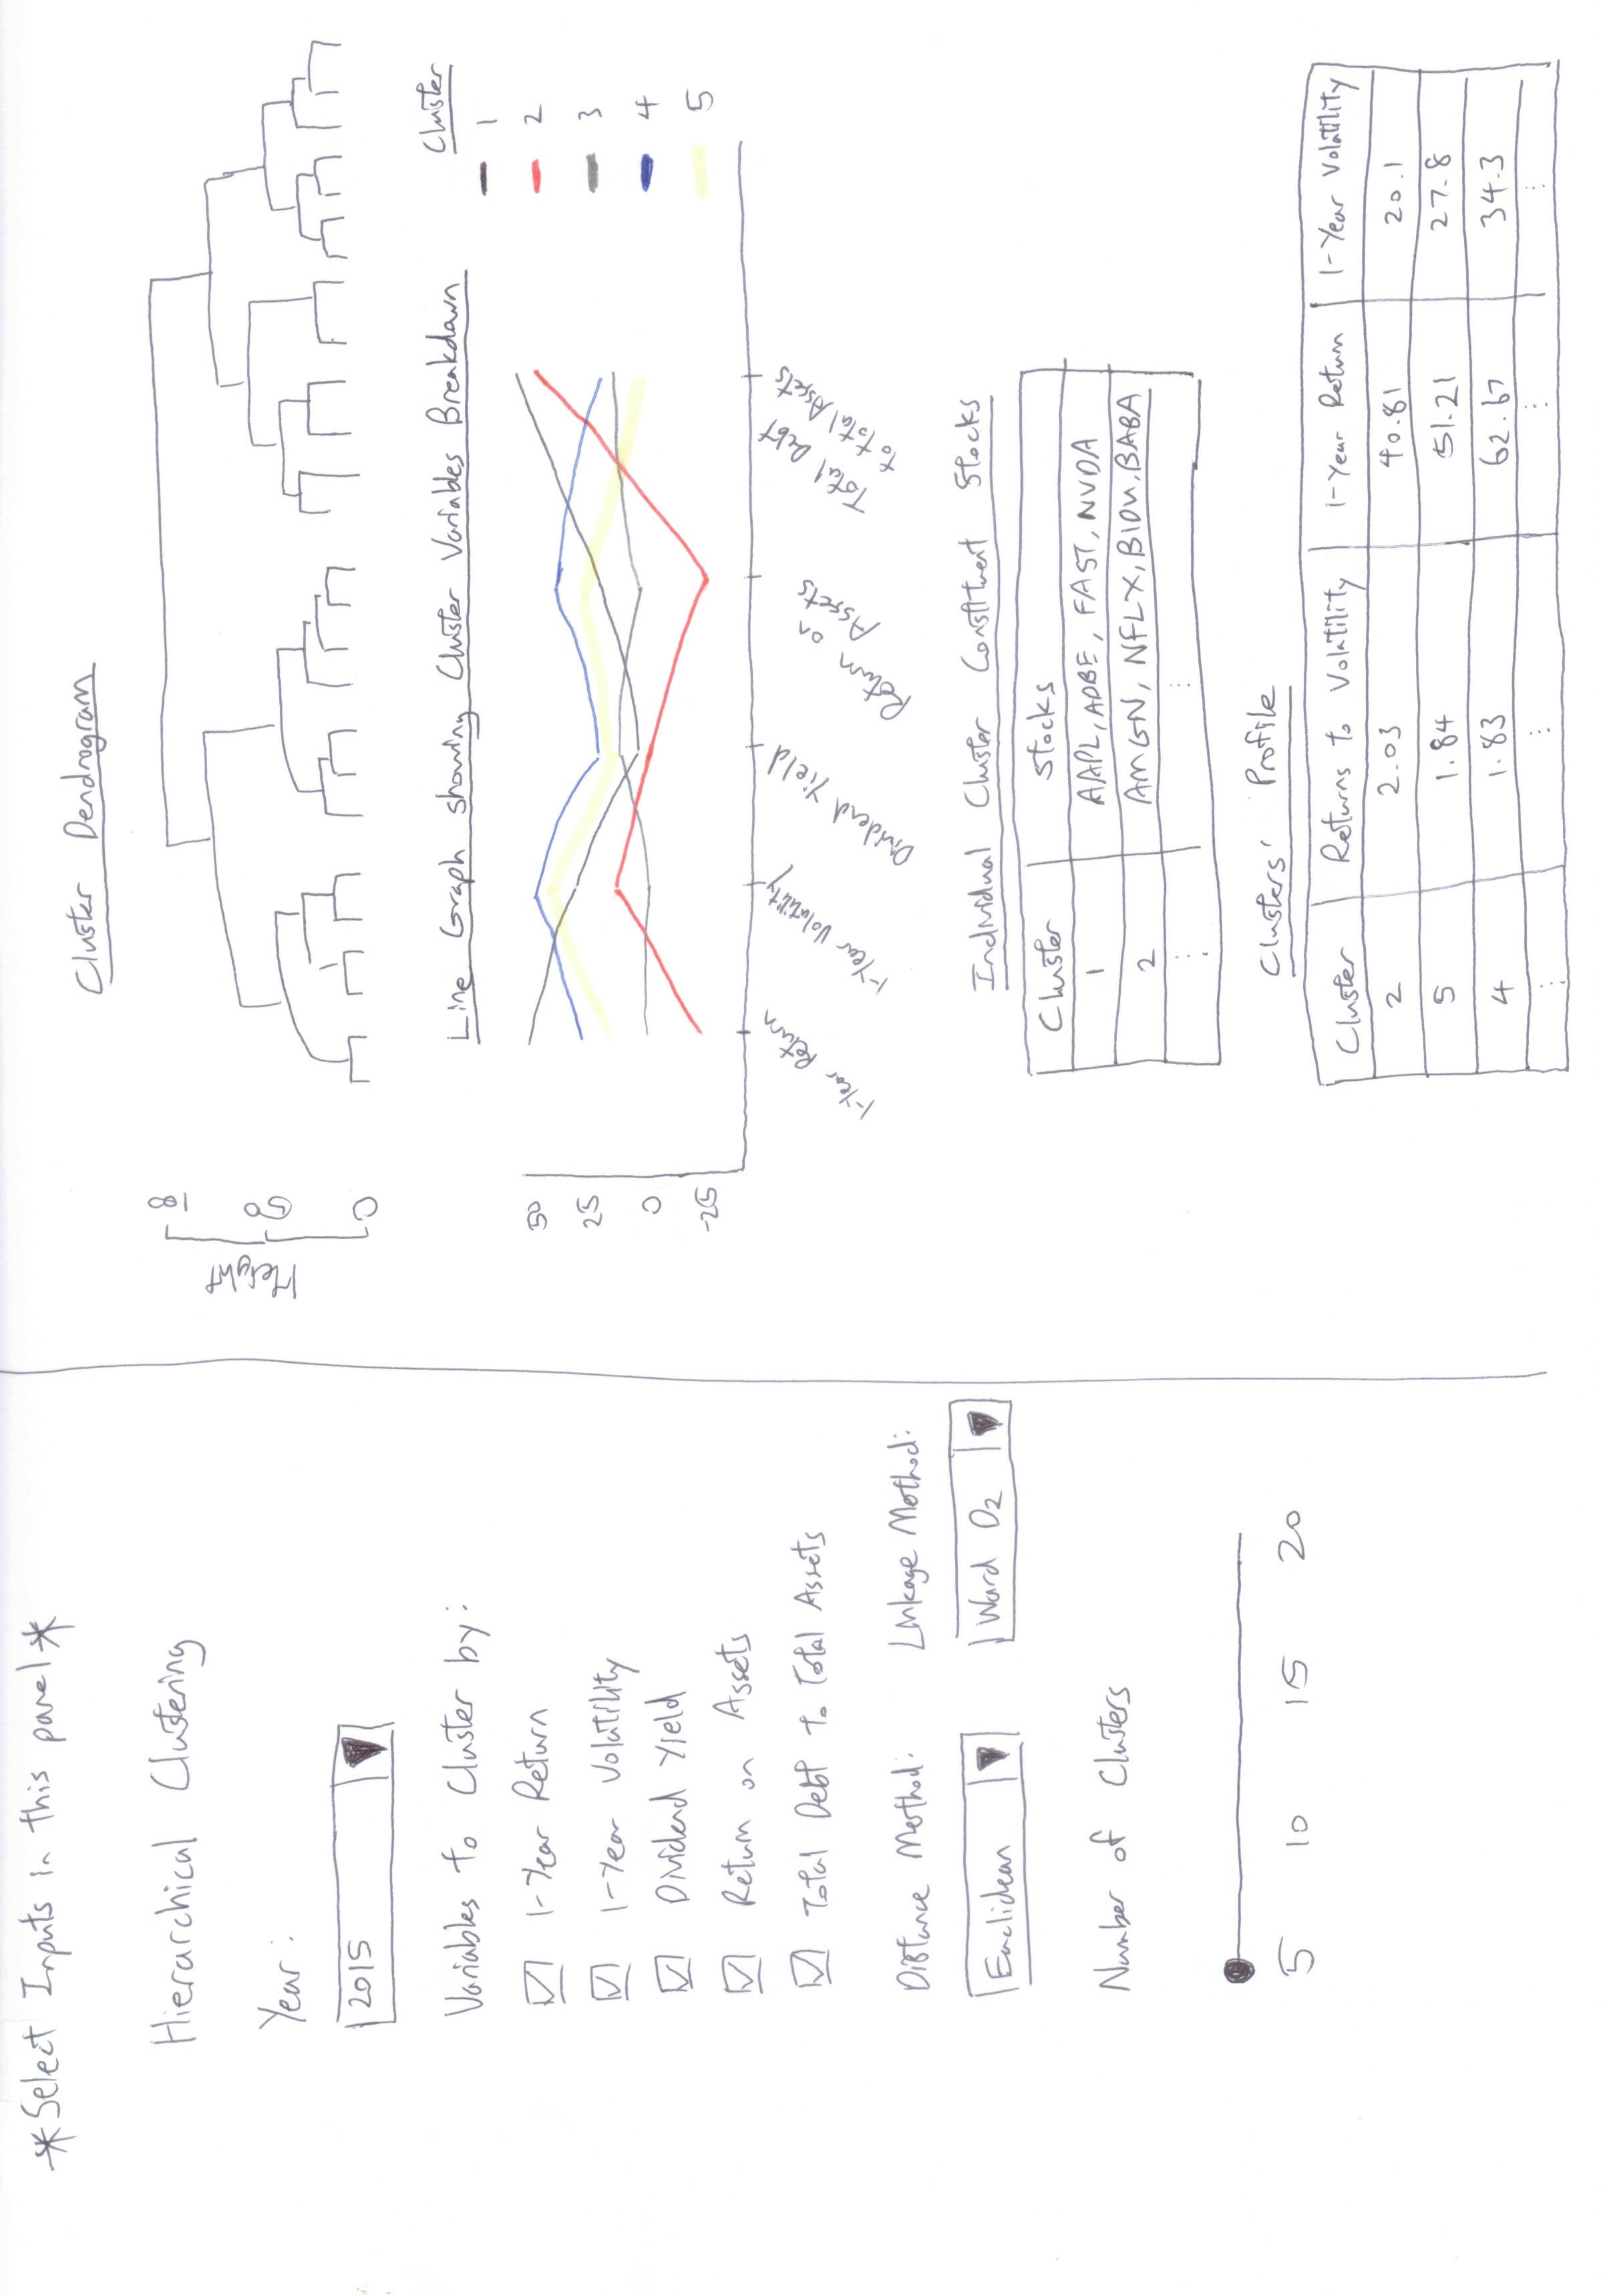 *Select Inputs in this panel*
Hierarchical Clustering
Year:
2015
Variables to Cluster by:
1-Year Return
1-Year Volatility
Dividend Yield
Return on Assets
Total Debt to Total Assets
Distance Method:
Linkage Method:
Euclidean
Ward D2
Number of Clusters
5 10 15 20
Cluster Dendrogram
Height
0
Line Graph showing Cluster Variables Breakdown
Cluster
1
2
3
4
5
50
25
0
-25
1-Year Return
1-Year Volatility
Dividend Yield
Return on
Assets
Total Debt
to Total Assets
Individual Cluster Constituent Stocks
Cluster Stocks
1 AAPL, ADBE, FAST, NVDA
2 AMGN, NFLX, BIDU, BABA
⋮ ⋮
Clusters' Profile
Cluster Returns to Volatility 1-Year Return 1-Year Volatility
2 2.03 40.81 20.1
5 1.84 51.21 27.8
4 1.83 62.67 34.3
⋮ ⋮ ⋮ ⋮